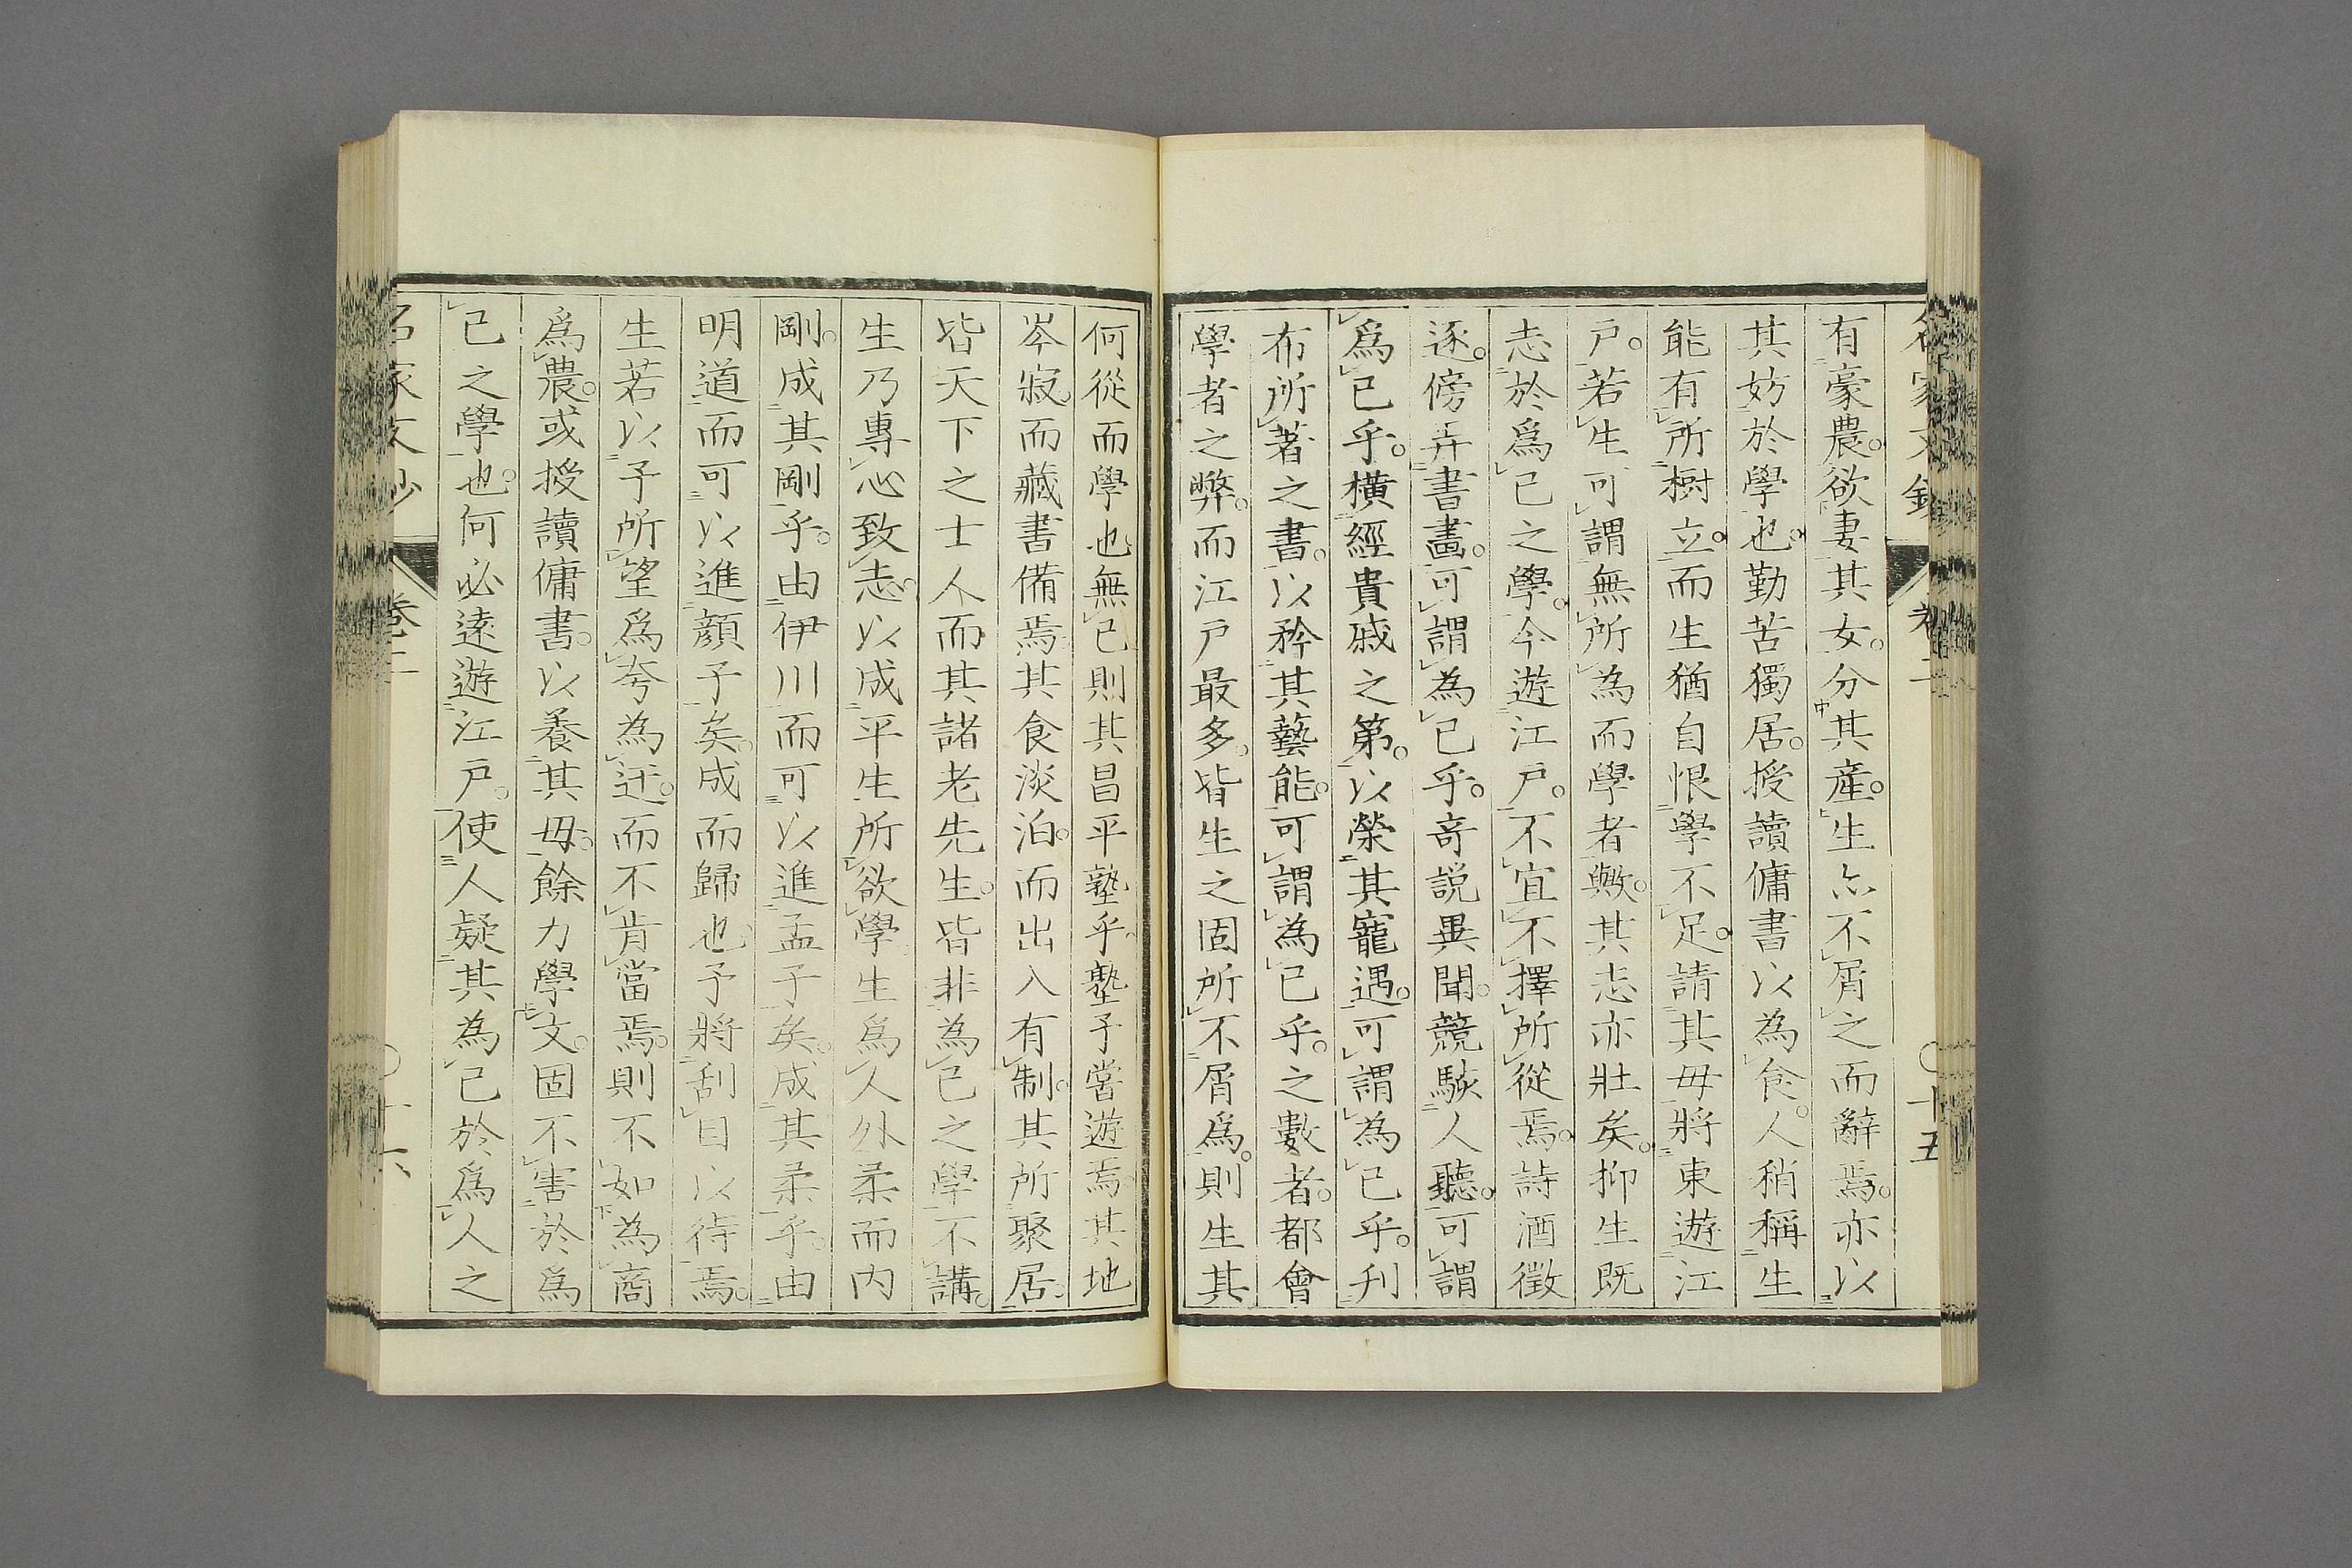 有豪農。欲妻其女。分其產。生亦不屑之而辭焉。亦以
其妨於學也。勤苦獨居。授讀傭書以為食。人稍稱生
能有所樹立。而生猶自恨學不足。請其毋將東遊江
戸。若生可謂無所為而學者歟。其志亦壯矣。抑生既
志於爲己之學。今遊江戸。不宜不擇所從焉。詩酒徵
逐。傍弄書畫。可謂為己乎。奇説異聞。競駭人聽。可謂
爲己乎。橫經貴戚之第。以榮其寵遇。可謂為己乎。刋
布所著之書。以矜其藝能。可謂為己乎。之數者。都會
學者之弊。而江戸最多。皆生之固所不屑爲。則生其
何從而學也。無已則其昌平塾乎。塾予嘗遊焉。其地
岑寂。而藏書備焉。其食淡泊。而出入有制。其所聚居。
皆天下之士人。而其諸老先生。皆非為己之學不講。
生乃專心致志。以成平生所欲學。生爲人外柔而内
剛。成其剛乎。由伊川而可以進孟子矣。成其柔乎。由
明道而可以進顔子矣。成而歸也。予將刮目以待焉。
生若以予所望爲夸為迂。而不肯當焉。則不如為商
爲農。或授讀傭書。以養其毋。餘力學文。固不害於爲
己之學也。何必遠遊江戸。使人疑其為己於爲人之
卷二